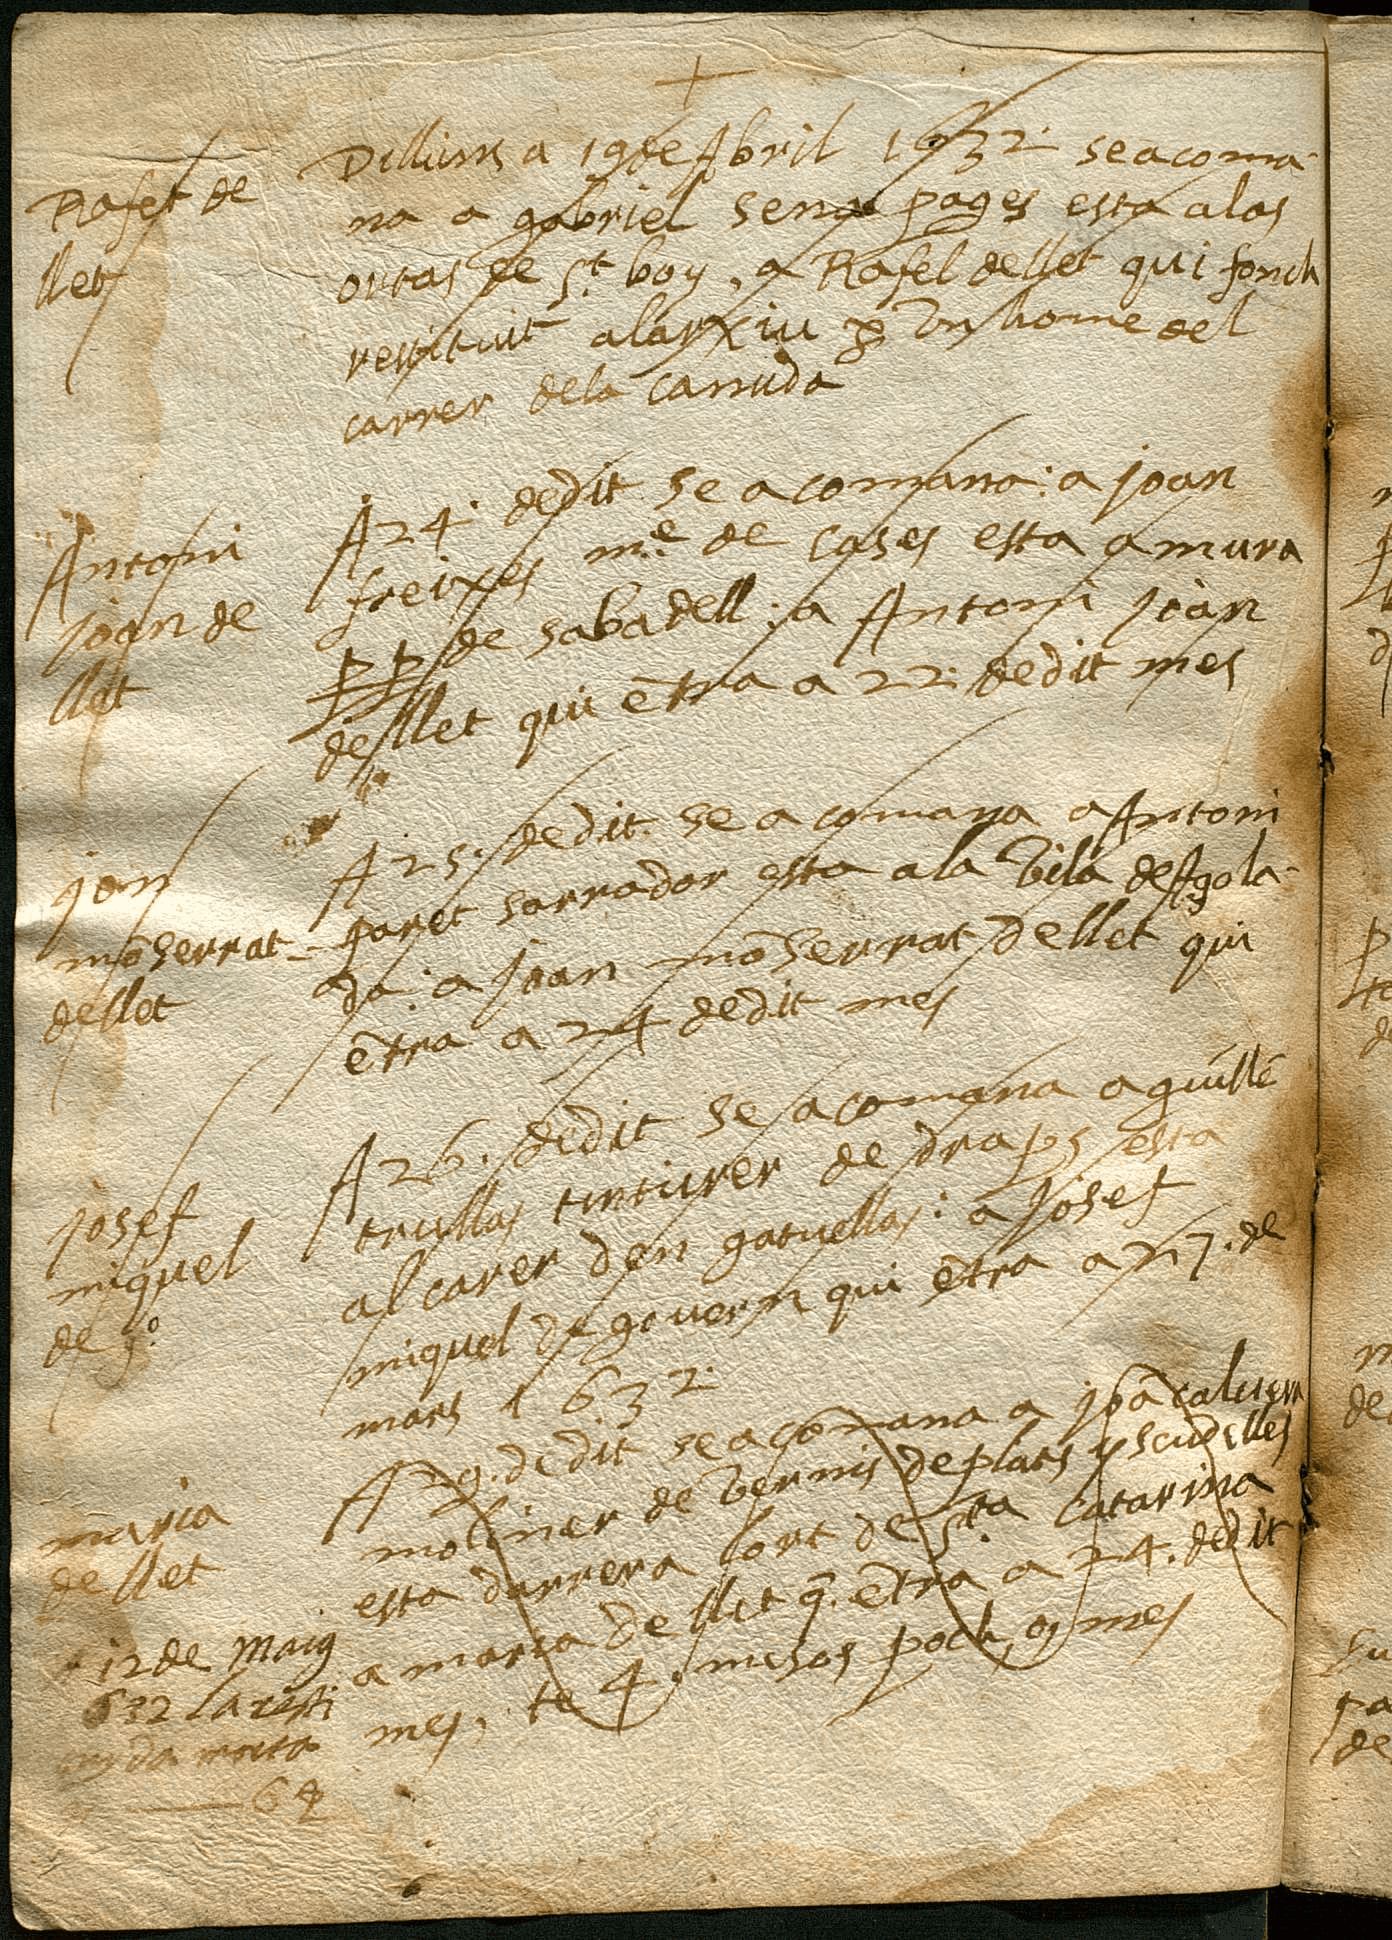 +
Rafel de
llet
Dilluns a 19 de Abril 1632 se acoma-
na a gabriel sena pages esta a las
ortas de St. boy, a Rafel de llet qui fonch
restituit al arxiu p un home del
carrer de la canuda
Antoni
joan de
llet
A 24. de dit se acomana: a joan
freixes m.e de cases esta a mura
pp de sabadell: a Antoni joan
de llet qui ētra a 22. de dit mes
joan
mōserrat
de llet
A 25. de dit. se acomana a Antoni
garet sarrador esta a la Vila de Agola-
da: a joan mōserrat de llet qui
ētra a 24 de dit mes
josef
miquel
de g.o
A 26. de dit se acomana a guillē
trullas tinturer de draps esta
al carer den gatuellas: a Josef
miquel de govern qui ētra a 27. de
mars 1632.
maria
de llet
A 29. de dit se acomana a joā caluera
moliner de Vernis de plats y scudelles
esta darrera lort de Sta Catarina
a maria de llet q. ētra a 24. de dit
mes, te 4. mesos poch o mes
12 de Maig
632 la resti
da morta
64